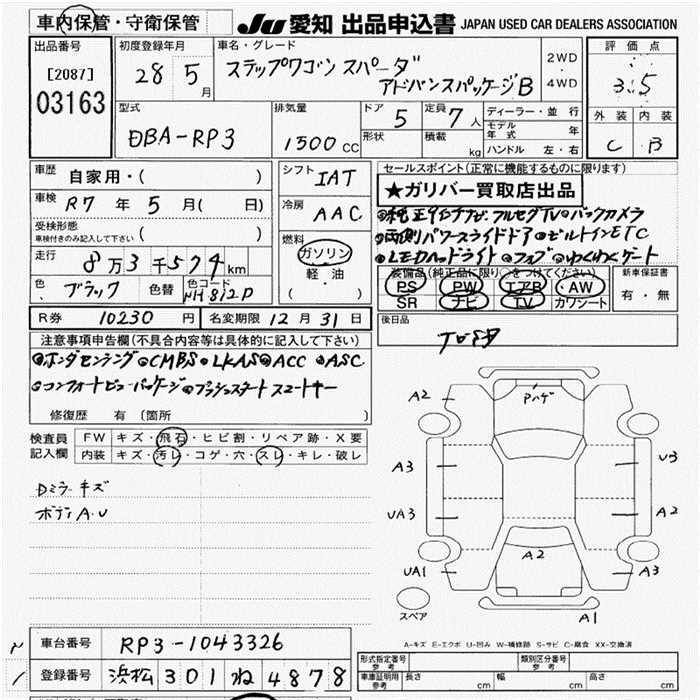 車内保管・守衛保管 JU 愛知 出品申込書 JAPAN USED CAR DEALERS ASSOCIATION
出品番号 初度登録年月 車名・グレード 評価点
[2087] 28 5月 ステップワゴン スパーダ 2WD
03163 アドバンスパッケージB 4WD 3.5
型式 排気量 ドア 定員 ディーラー・並行 外装 内装
DBA-RP3 1500cc 5 7人 モデル年式 年 C B
形状 積載 kg ハンドル 左・右
車歴 自家用・( ) シフト IAT セールスポイント(正常に機能するものに限ります)
★ガリバー買取店出品
車検 R7年 5月( 日) 冷房 AAC ●純正9インチナビ フルセグTV ●バックカメラ
受検形態 ●両側パワースライドドア ●ビルトインETC
車検付きのみ記入して下さい ( )
走行 8万3千574km 燃料 ガソリン ●LEDヘッドライト ●フォグ ●わくわくゲート
軽油
( )
色 ブラック 色替 色コード NH812P
装備品(純正品に限り○をつけてください) 新車保証書
PS PW エアB AW 有・無
SR ナビ TV カワシート
R券 10230円 名変期限 12月31日 後日品
注意事項申告欄(不具合箇所等は具体的に記入して下さい)
●ホンダセンシング ●CMBS ●LKAS ●ACC ●ASC
●コンフォートビューパッケージ ●プッシュスタート スマートキー
修復歴 有 (箇所 )
検査員記入欄 FW キズ・飛石・ヒビ割・リペア跡・X要
内装 キズ・汚レ・コゲ・穴・スレ・キレ・破レ
Dミラーキズ
ボディA.U
A2 Pハゲ
A3 U3
UA3 A2
UA1 A2 A3
スペア A1
A-キズ E-エクボ U-凹み W-補修跡 S-サビ C-腐食 XX-交換済
車台番号 RP3-1043326
登録番号 浜松 301 ね 4878
形式指定番号 参考 類別区分番号 参考
車庫証明用 参考 長さ cm 幅 cm 高さ cm